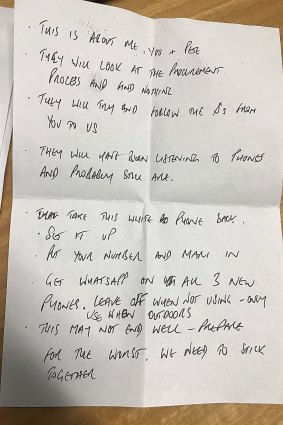 · THIS IS ABOUT ME, YOU + PETE
· THEY WILL LOOK AT THE PROCUREMENT
PROCESS AND FIND NOTHING
· THEY WILL TRY AND FOLLOW THE $s FROM
YOU TO US
· THEY WILL HAVE BEEN LISTENING TO PHONES
AND PROBABLY STILL ARE.
· TAKE THIS WHITE PHONE BACK.
· SET IT UP
· PUT YOUR NUMBER AND MANU IN
· GET WHATSAPP ON ALL 3 NEW
PHONES. LEAVE OFF WHEN NOT USING - ONLY
USE WHEN OUTDOORS
· THIS MAY NOT END WELL - PREPARE
FOR THE WORST. WE NEED TO STICK
TOGETHER